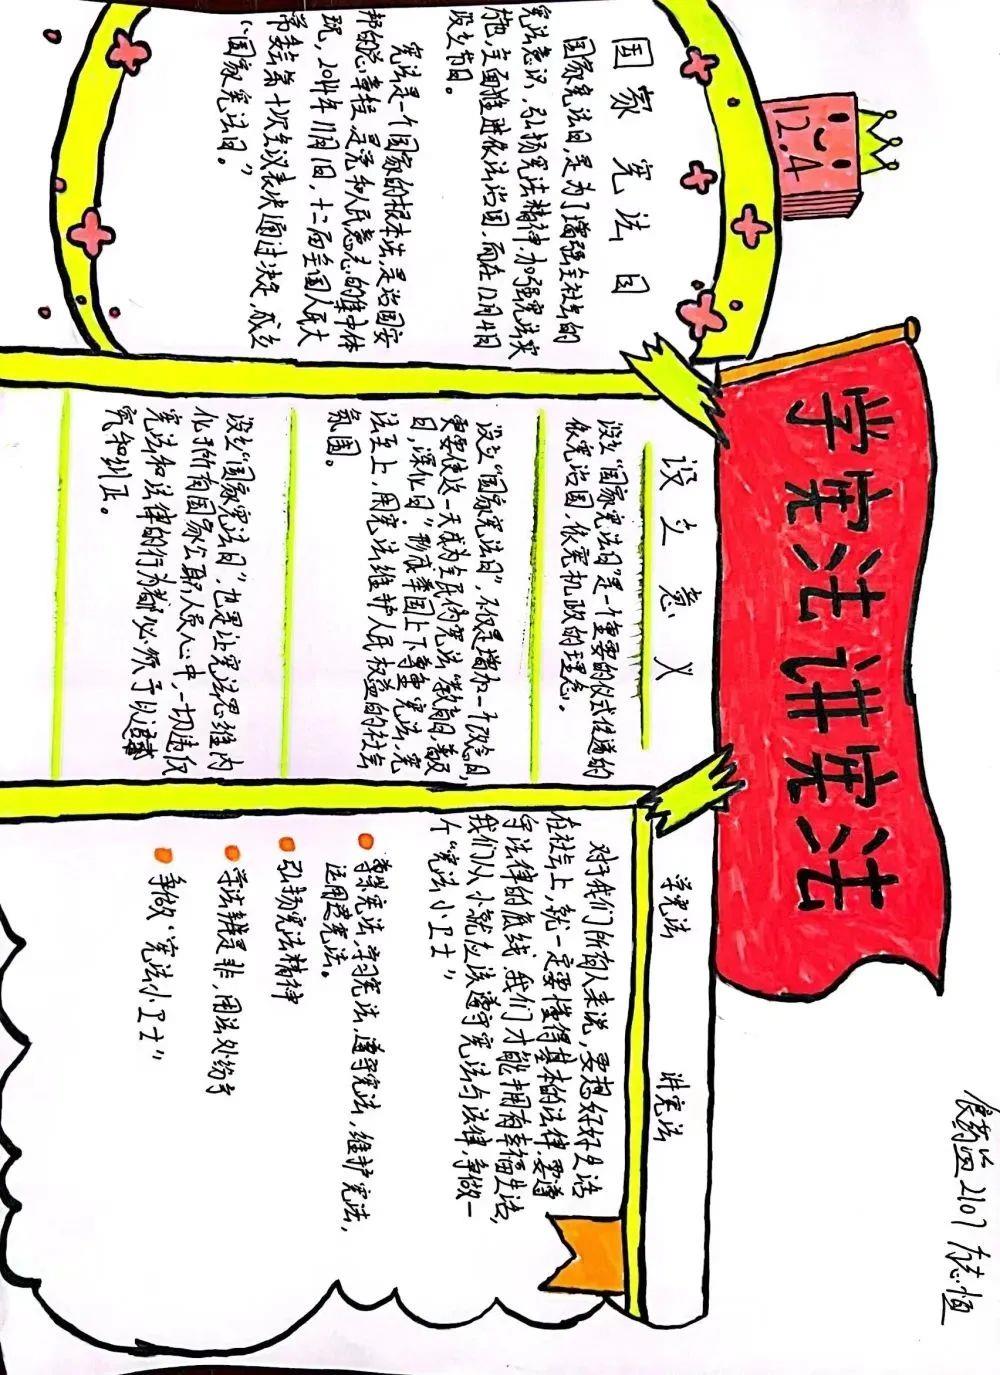 学宪法讲宪法
12.4
国家宪法日
国家宪法日,是为了增强全社会的
宪法意识,弘扬宪法精神,加强宪法实
施,全面推进依法治国,而在12月4日
设立节日。
宪法是一个国家的根本法,是治国安
邦的总章程,是党和人民意志的集中体
现,2014年11月1日,十二届全国人民大
常委会第十次会议表决通过决定,成立
“国家宪法日。”
设立意义
设立“国家宪法日”是一个重要的仪式传递的
依宪治国,依宪机政的理念。
设立“国家宪法日”,不仅是增加一个纪念日,
更要使这一天成为全民的宪法“教育日、普及
日、深化日”,形成举国上下尊重宪法、宪
法至上,用宪法维护人民权益的社会
氛围。
设立“国家宪法日”,也是让宪法思维内
化于所有国家公职人员心中,一切违反
宪法和法律的行为都必须予以追
究和纠正。
学宪法 讲宪法
对于我们所有人来说,要想好好生活
在社会上,就一定要懂得基本的法律,要遵
守法律的底线,我们才能拥有幸福生活,
我们从小就应该遵守宪法与法律,争做一
个“宪法小卫士”
尊崇宪法,学习宪法,遵守宪法,维护宪法,
运用宪法。
弘扬宪法精神
学法辨是非,用法处纷争
争做“宪法小卫士”
2107 方志恒